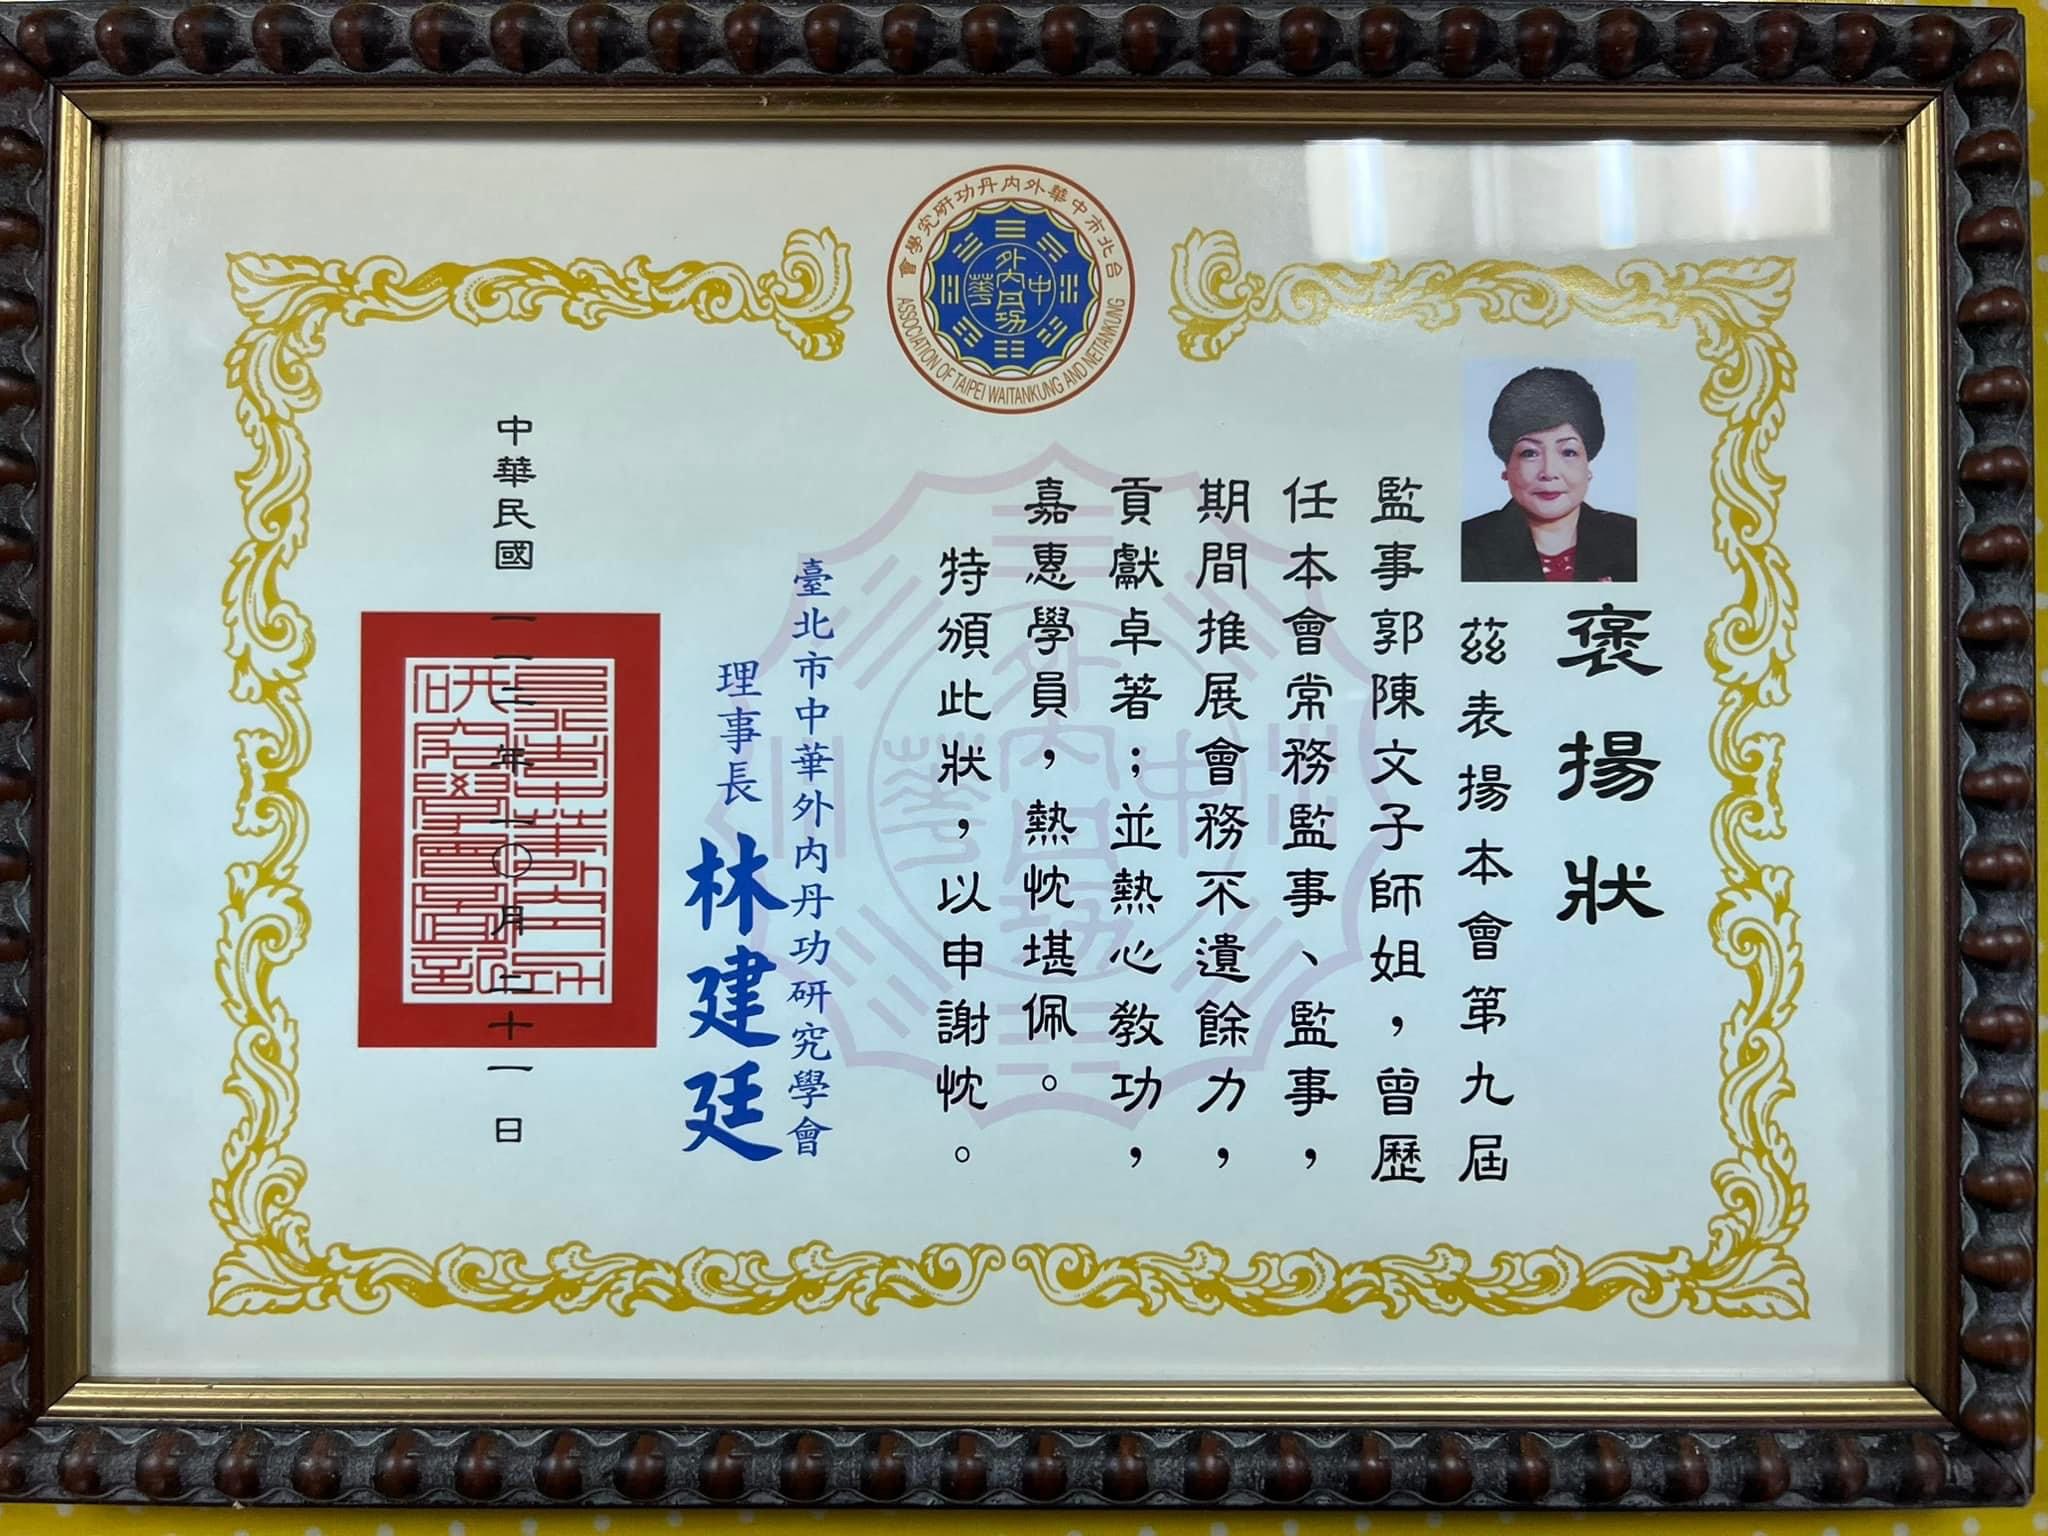 台北市中華外內丹功研究學會
ASSOCIATION OF TAIPEI WAITANKUNG AND NEITANKUNG
中華
外內丹功
褒揚狀
茲表揚本會第九屆
監事郭陳文子師姐，曾歷
任本會常務監事、監事，
期間推展會務不遺餘力，
貢獻卓著；並熱心教功，
嘉惠學員，熱忱堪佩。
特頒此狀，以申謝忱。
臺北市中華外內丹功研究學會
理事長 林建廷
中華民國一一二年一〇月二十一日